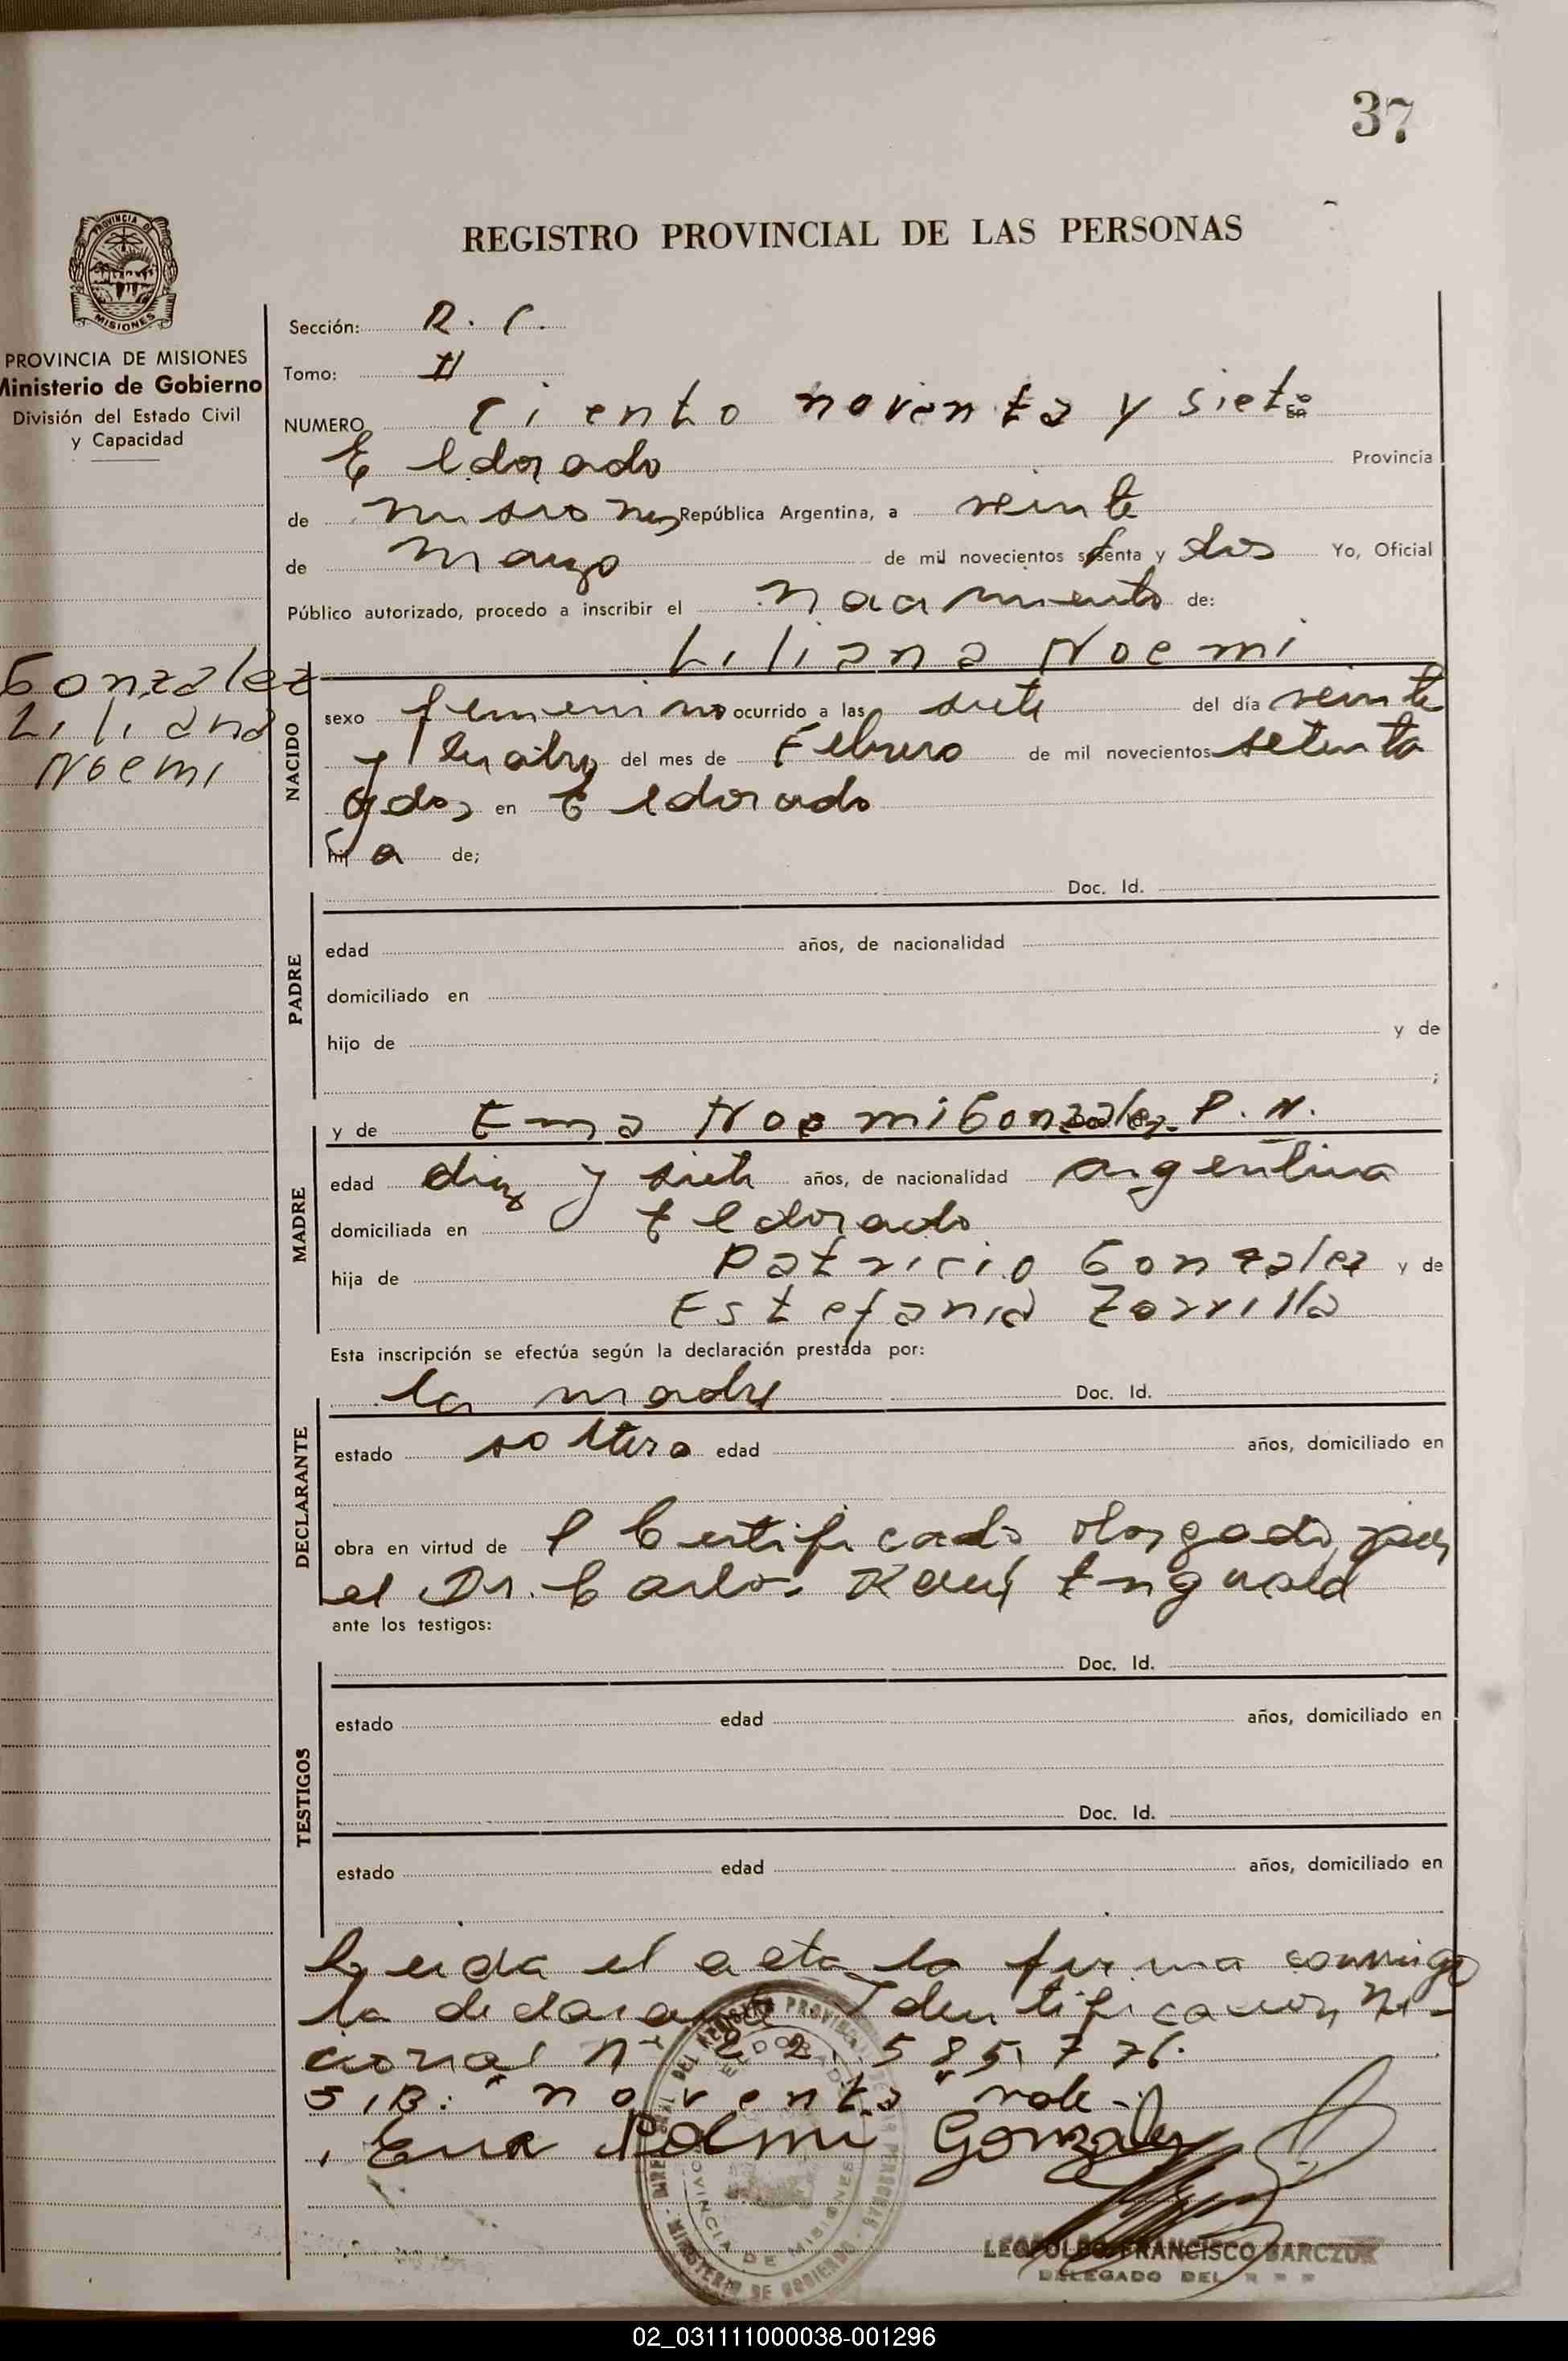 37
PROVINCIA DE
MISIONES
REGISTRO PROVINCIAL DE LAS PERSONAS
PROVINCIA DE MISIONES
Ministerio de Gobierno
División del Estado Civil
y Capacidad
Gonzalez
Liliana
Noemi
Sección: R. C.
Tomo: II
NUMERO Ciento noventa y siete EN
Eldorado Provincia
de Misiones República Argentina, a veinte
de Marzo de mil novecientos setenta y dos Yo, Oficial
Público autorizado, procedo a inscribir el Nacimiento de:
Liliana Noemi
NACIDO
sexo femenino ocurrido a las siete del día veinte
y cuatro del mes de Febrero de mil novecientos setenta
y dos en Eldorado
hij a de;
PADRE
Doc. Id.
edad años, de nacionalidad
domiciliado en
hijo de y de
;
MADRE
y de Ema Noemi Gonzalez P. N.
edad diez y siete años, de nacionalidad argentina
domiciliada en Eldorado
hija de Patricio Gonzalez y de
Estefania Zorrilla
Esta inscripción se efectúa según la declaración prestada por:
DECLARANTE
la madre Doc. Id.
estado soltera edad años, domiciliado en
obra en virtud de l Certificado otorgado por
el Dr. Carlos
ante los testigos:
TESTIGOS
Doc. Id.
estado edad años, domiciliado en
Doc. Id.
estado edad años, domiciliado en
Leida el acta la firma conmigo
la declarante Identificacion Na-
cional nº 22.585.776.
S/B: "noventa" vale.
Ema Noemi Gonzalez
ELDORADO
PROVINCIA DE MISIONES
MINISTERIO DE GOBIERNO
LEOPOLDO FRANCISCO BARCZUK
DELEGADO DEL
02_031111000038-001296